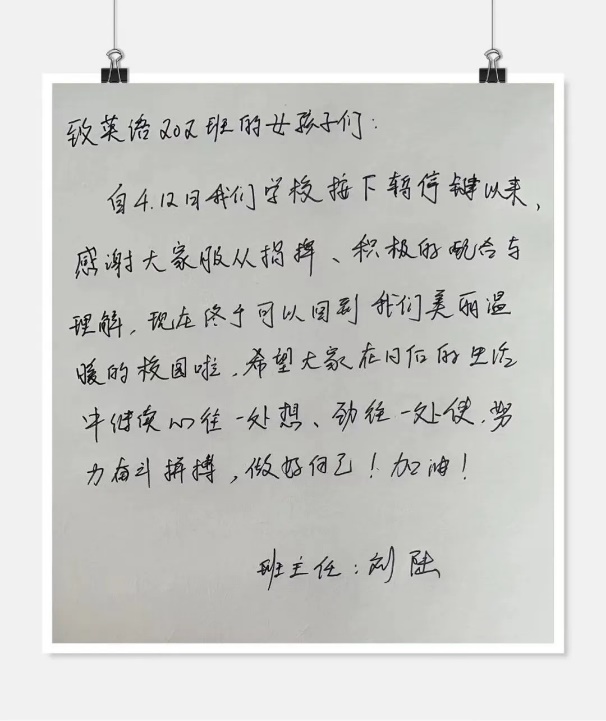 致英语202班的女孩子们：
自4.12日我们学校按下暂停键以来，
感谢大家服从指挥、积极的配合与
理解，现在终于可以回到我们美丽温
暖的校园啦，希望大家在日后的生活
中继续心往一处想、劲往一处使，努
力奋斗拼搏，做好自己！加油！
班主任：刘陆